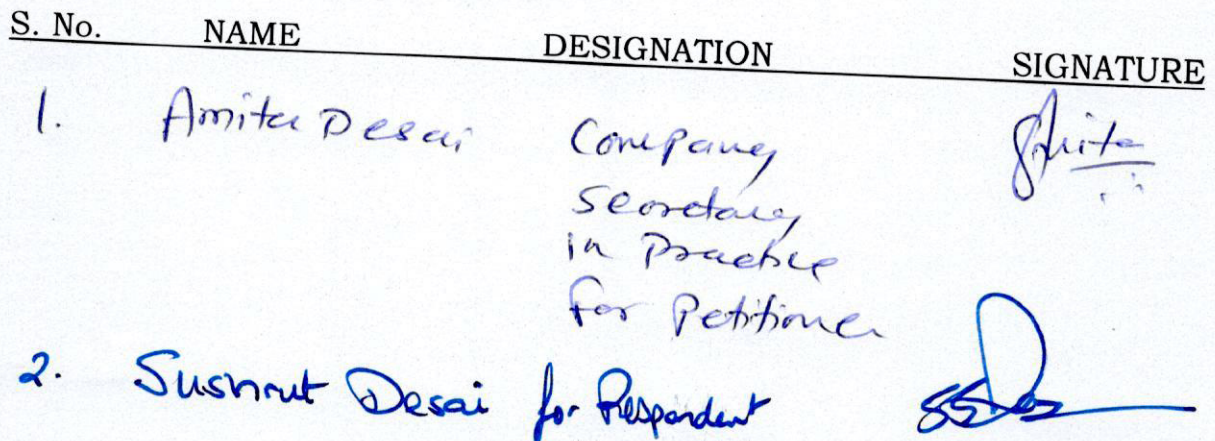 S. No. NAME DESIGNATION SIGNATURE
1. Amita Desai Company
Secretary
in Practice
for Petitioner
2. Sushrut Desai for Respondent